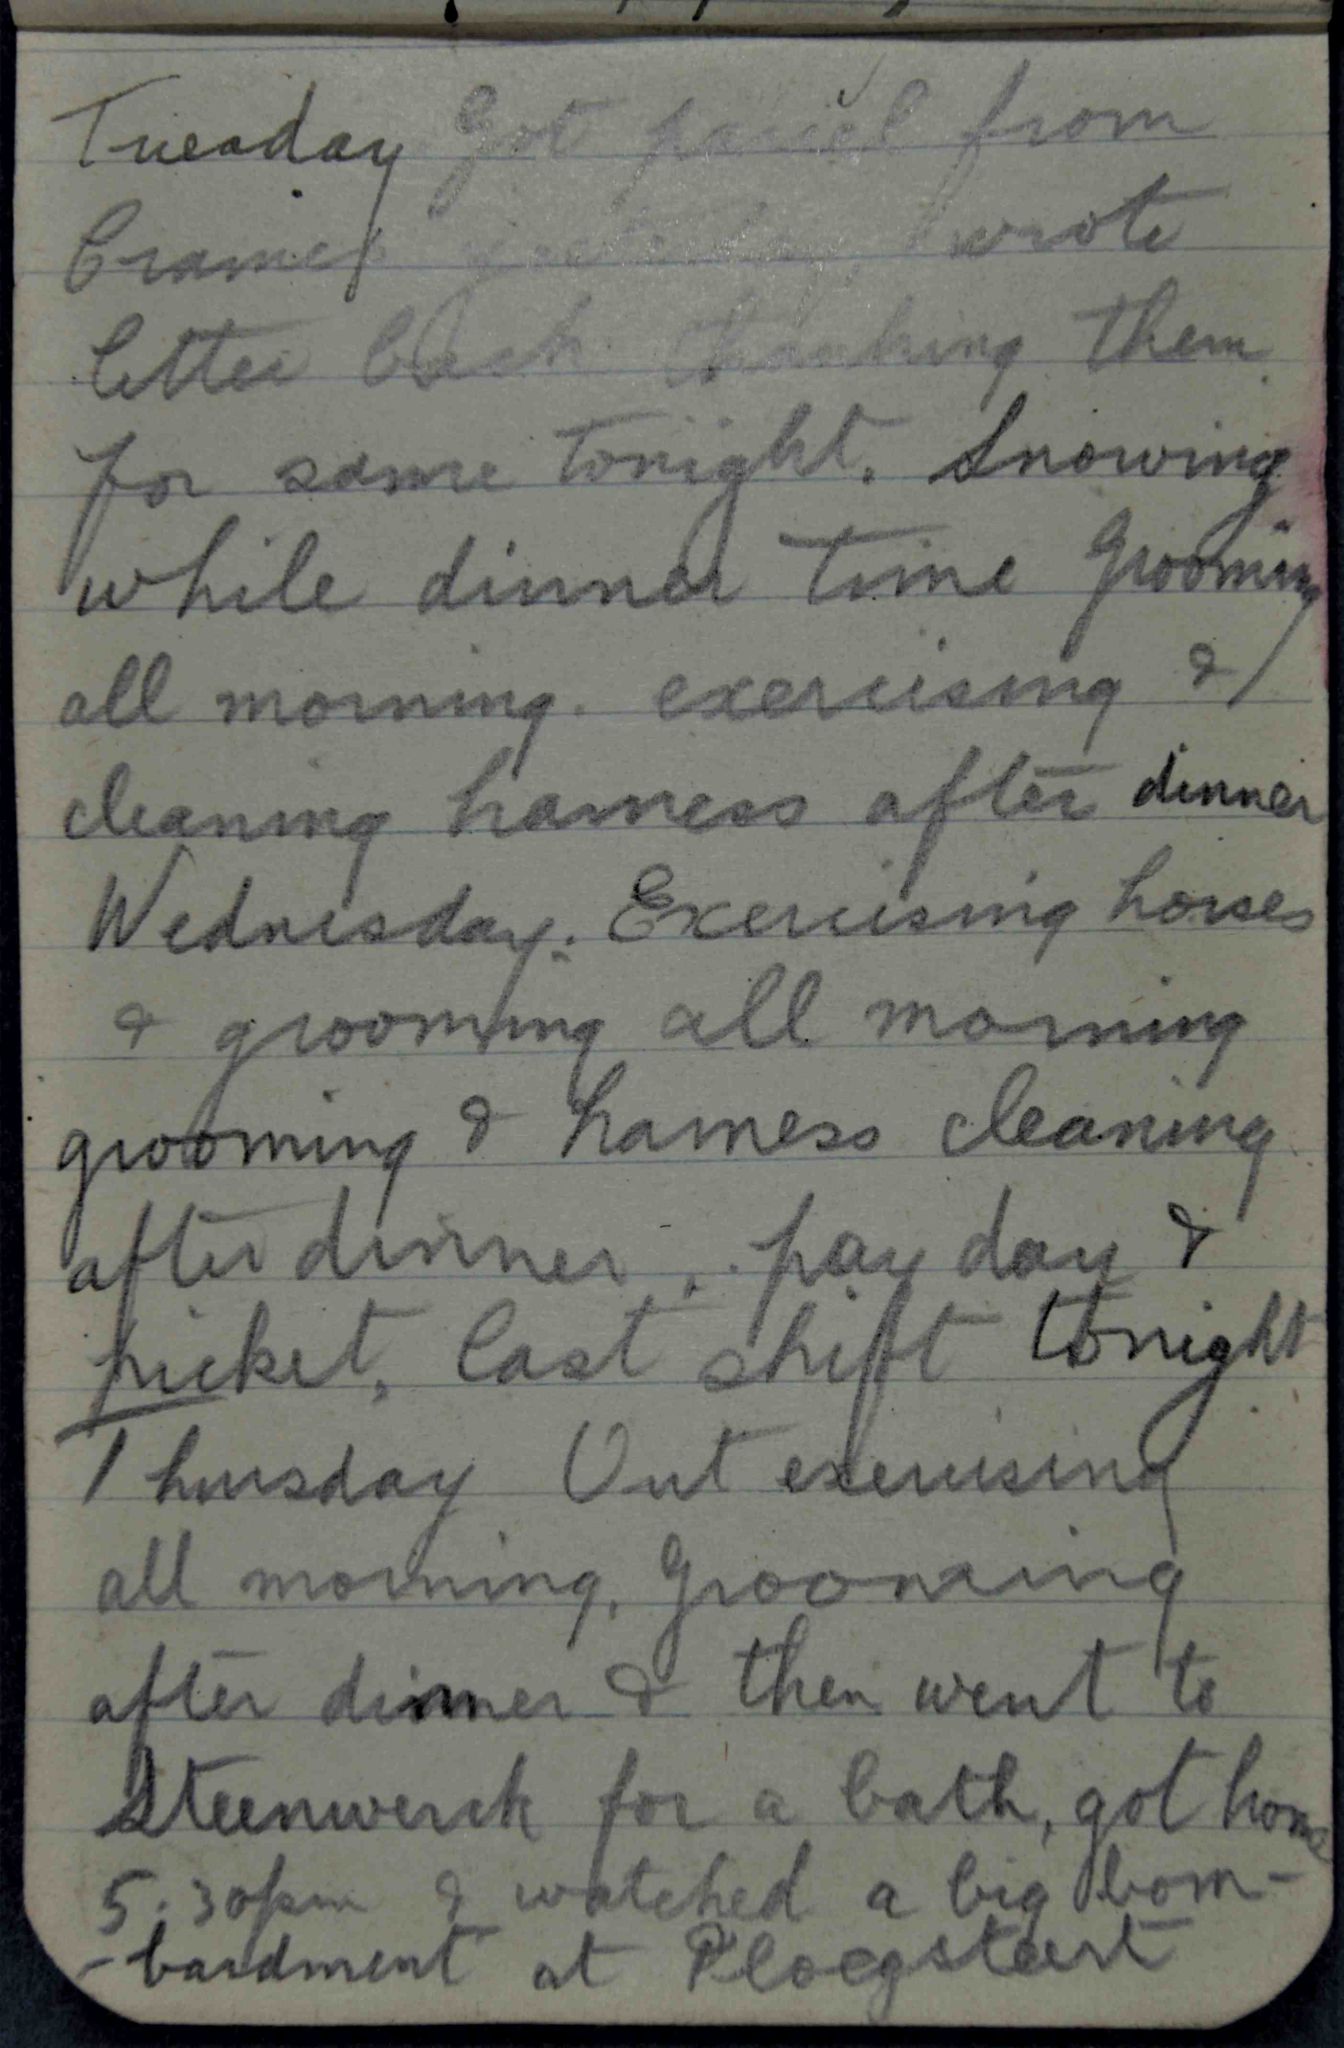 Tuesday Got parcel from
Cramer yesterday, wrote
letter back thanking them
for same tonight. Snowing
while dinner time Grooming
all morning. exercising &
cleaning harness after dinner
Wednesday. Exercising horses
& grooming all morning
grooming & harness cleaning
after dinner, pay day &
picket, last shift tonight
Thursday Out exercising
all morning, Grooming
after dinner & then went to
Steenwerck for a bath, got home
5.30pm & watched a big bom-
-bardment at Ploegsteert